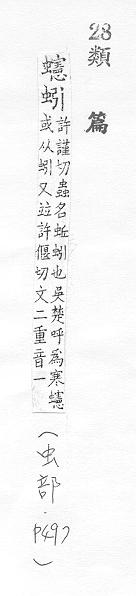 28
類篇
蟪蚓許謹切蟲名蚯蚓也吳楚呼為寒蟪
或从蚓又並許偃切文二重音一
（虫部．P497）